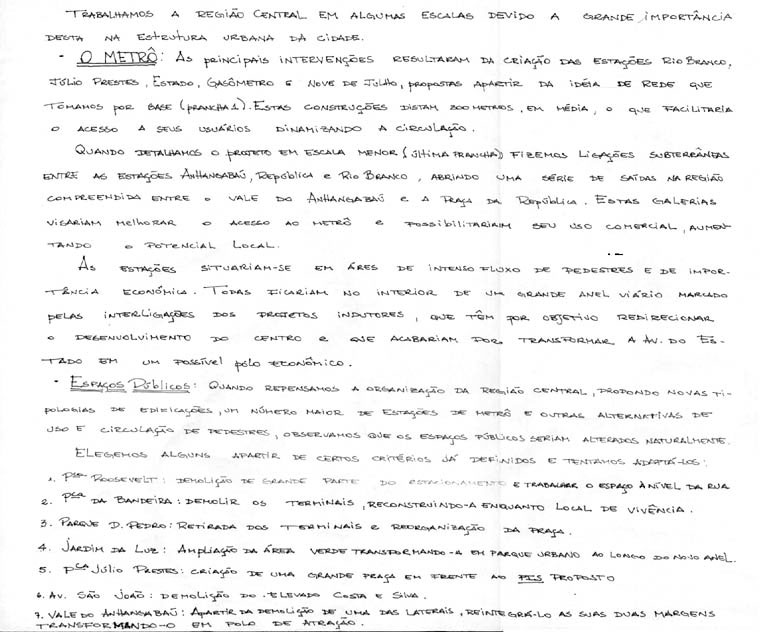 TRABALHAMOS A REGIÃO CENTRAL EM ALGUMAS ESCALAS DEVIDO A GRANDE IMPORTÂNCIA
DESTA NA ESTRUTURA URBANA DA CIDADE.
· O METRÔ: AS PRINCIPAIS INTERVENÇÕES RESULTARAM DA CRIAÇÃO DAS ESTAÇÕES RIO BRANCO,
JÚLIO PRESTES, ESTADO, GASÔMETRO E NOVE DE JULHO, PROPOSTAS APARTIR DA IDÉIA DE REDE QUE
TOMAMOS POR BASE (PRANCHA 1). ESTAS CONSTRUÇÕES DISTAM 800 METROS, EM MÉDIA, O QUE FACILITARIA
O ACESSO A SEUS USUÁRIOS DINAMIZANDO A CIRCULAÇÃO.
QUANDO DETALHAMOS O PROJETO EM ESCALA MENOR (ÚLTIMA PRANCHA) FIZEMOS LIGAÇÕES SUBTERRÂNEAS
ENTRE AS ESTAÇÕES ANHANGABAÚ, REPÚBLICA E RIO BRANCO, ABRINDO UMA SÉRIE DE SAÍDAS NA REGIÃO
COMPREENDIDA ENTRE O VALE DO ANHANGABAÚ E A PRAÇA DA REPÚBLICA. ESTAS GALERIAS
VISARIAM MELHORAR O ACESSO AO METRÔ E POSSIBILITARIAM SEU USO COMERCIAL, AUMEN-
TANDO O POTENCIAL LOCAL.
AS ESTAÇÕES SITUARIAM-SE EM ÁRES DE INTENSO FLUXO DE PEDESTRES E DE IMPOR-
TÂNCIA ECONÔMICA. TODAS FICARIAM NO INTERIOR DE UM GRANDE ANEL VIÁRIO MARCADO
PELAS INTERLIGAÇÕES DOS PROJETOS INDUTORES, QUE TÊM POR OBJETIVO REDIRECIONAR
O DESENVOLVIMENTO DO CENTRO E QUE ACABARIAM POR TRANSFORMAR A AV. DO ES-
TADO EM UM POSSÍVEL PÓLO ECONÔMICO.
· ESPAÇOS PÚBLICOS: QUANDO REPENSAMOS A ORGANIZAÇÃO DA REGIÃO CENTRAL, PROPONDO NOVAS TI-
POLOGIAS DE EDIFICAÇÕES, UM NÚMERO MAIOR DE ESTAÇÕES DE METRÔ E OUTRAS ALTERNATIVAS DE
USO E CIRCULAÇÃO DE PEDESTRES, OBSERVAMOS QUE OS ESPAÇOS PÚBLICOS SERIAM ALTERADOS NATURALMENTE.
ELEGEMOS ALGUNS APARTIR DE CERTOS CRITÉRIOS JÁ DEFINIDOS E TENTAMOS ADAPTÁ-LOS:
1. PÇA ROOSEVELT: DEMOLIÇÃO DE GRANDE PARTE DO ESTACIONAMENTO E TRABALHAR O ESPAÇO À NÍVEL DA RUA
2. PÇA DA BANDEIRA: DEMOLIR OS TERMINAIS, RECONSTRUINDO-A ENQUANTO LOCAL DE VIVÊNCIA.
3. PARQUE D. PEDRO: RETIRADA DOS TERMINAIS E REORGANIZAÇÃO DA PRAÇA.
4. JARDIM DA LUZ: AMPLIAÇÃO DA ÁREA VERDE TRANSFORMANDO-A EM PARQUE URBANO AO LONGO DO NOVO ANEL.
5. PÇA JÚLIO PRESTES: CRIAÇÃO DE UMA GRANDE PRAÇA EM FRENTE AO PROPOSTO
6. AV. SÃO JOÃO: DEMOLIÇÃO DO ELEVADO COSTA E SILVA.
7. VALE DO ANHANGABAÚ: APARTIR DA DEMOLIÇÃO DE UMA DAS LATERAIS, REINTEGRÁ-LO AS SUAS DUAS MARGENS
TRANSFORMANDO-O EM POLO DE ATRAÇÃO.